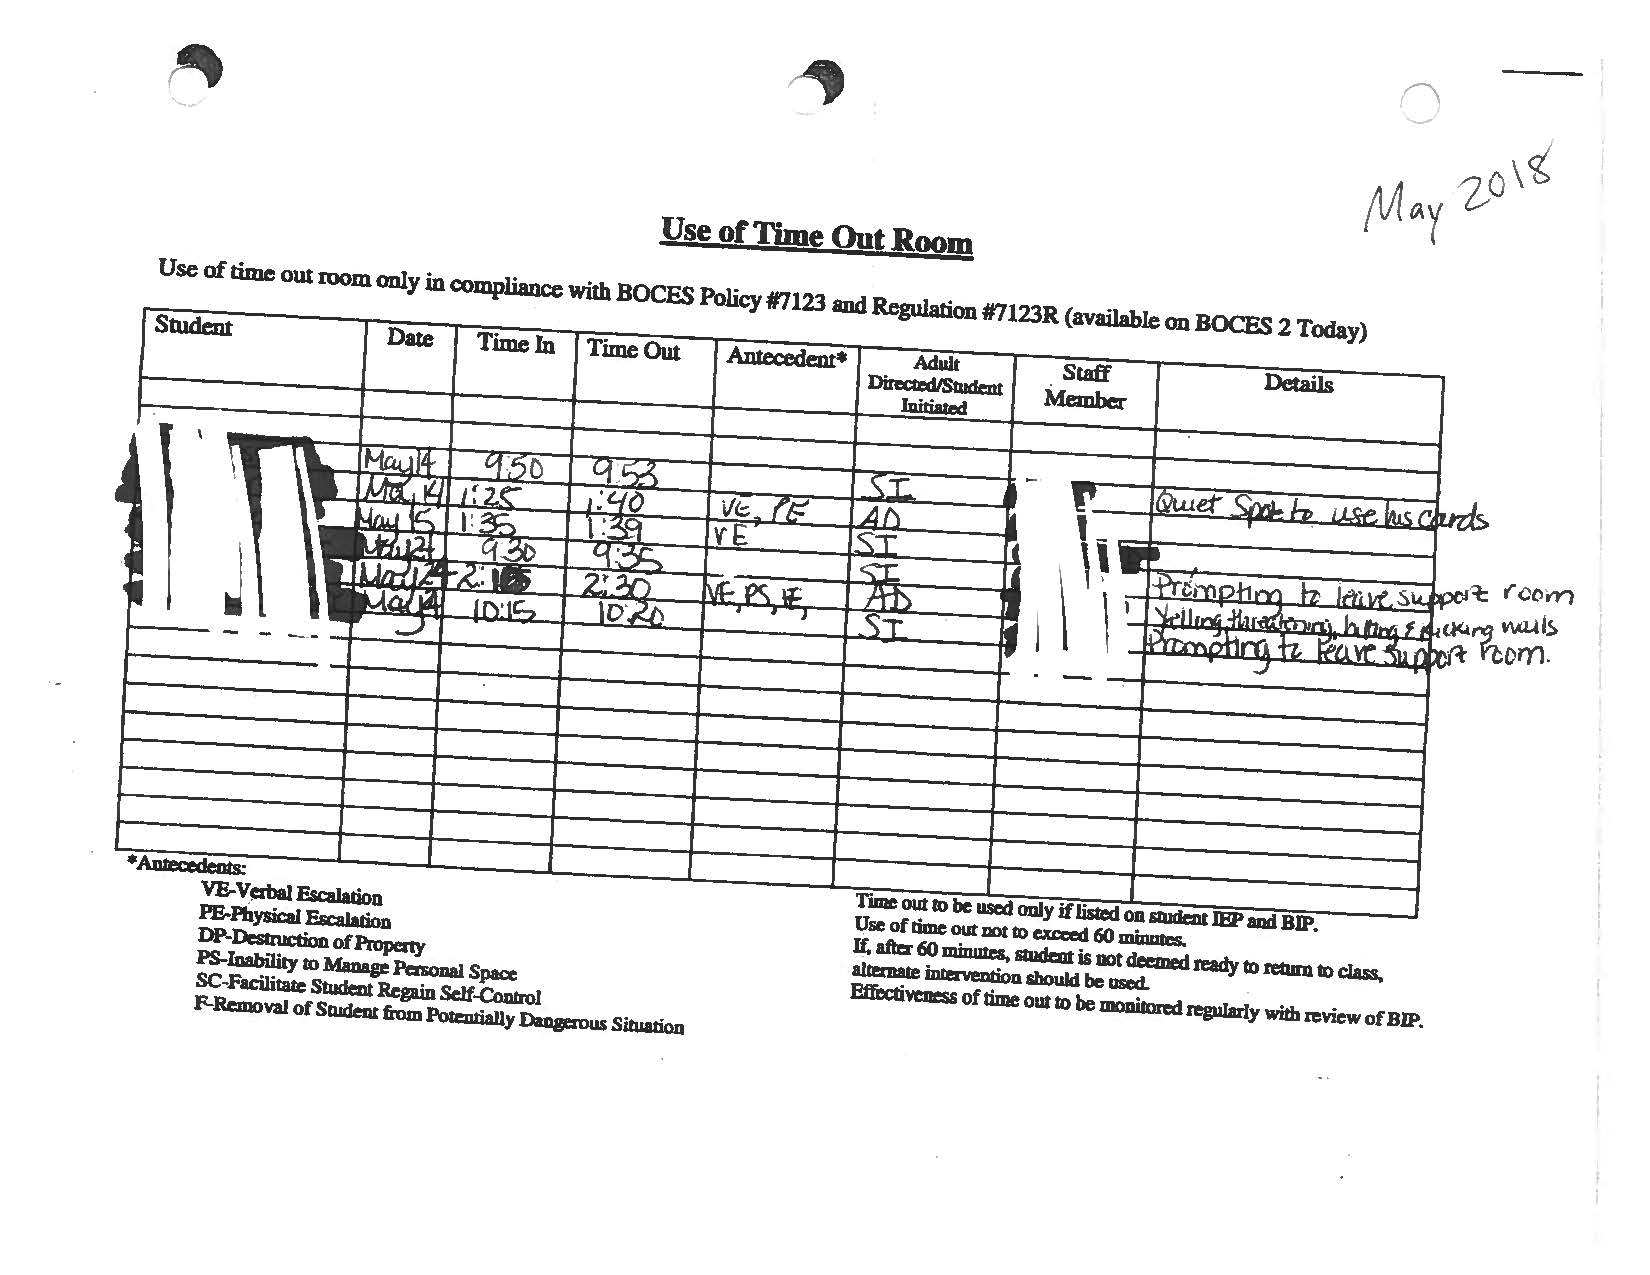 May 2018
Use of Time Out Room
Use of time out room only in compliance with BOCES Policy #7123 and Regulation #7123R (available on BOCES 2 Today)
Student Date Time In Time Out Antecedent* Adult Directed/Student Initiated Staff Member Details
May 14 9:50 9:53 SI Quiet Spot to use his cards
May 14 1:25 1:40 VE, PE AD
May 15 1:35 1:39 VE SI
May 9:30 9:35 SI Prompting to leave support room
May 24 2:30 VE, PS, AD Yelling, threatening, hitting & kicking walls
May 10:15 10:20 SI Prompting to leave support room.
*Antecedents:
VE-Verbal Escalation
PE-Physical Escalation
DP-Destruction of Property
PS-Inability to Manage Personal Space
SC-Facilitate Student Regain Self-Control
F-Removal of Student from Potentially Dangerous Situation
Time out to be used only if listed on student IEP and BIP.
Use of time out not to exceed 60 minutes.
If, after 60 minutes, student is not deemed ready to return to class,
alternate intervention should be used.
Effectiveness of time out to be monitored regularly with review of BIP.